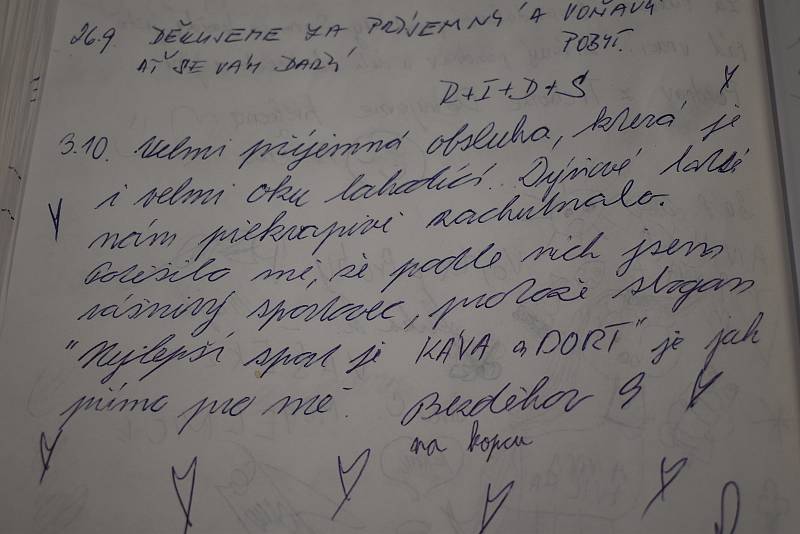 26.9 DĚKUJEME ZA PŘÍJEMNÝ A VOŇAVÝ
POBYT.
AŤ SE VÁM DAŘÍ
R+I+D+S
3.10. Velmi příjemná obsluha, která je
i velmi oku lahodící. Dýňové latté
nám překvapivě zachutnalo.
Potěšilo mě, že podle nich jsem
vášnivý sportovec, protože slogan
"Nejlepší sport je KÁVA a DORT" je jak
přímo pro mě. Bezděkov 9
na kopcu